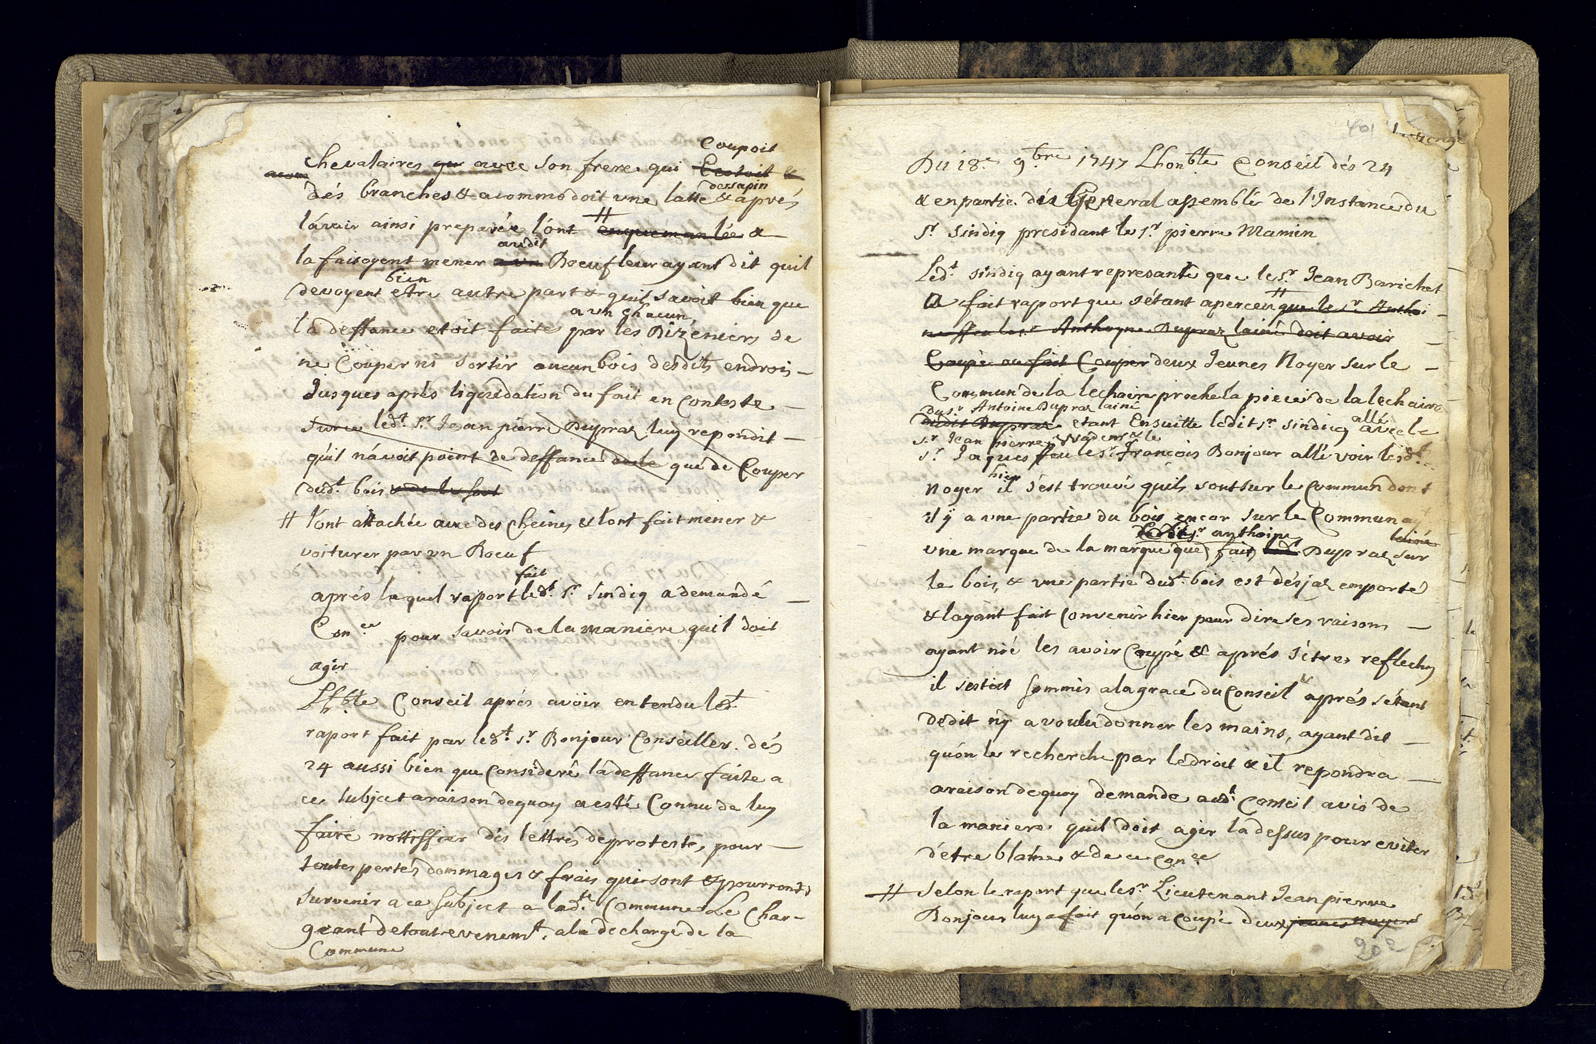 Coupoit
chevalaires qu avec son frere qui &
dés branches & acommodoit une latte dessapin & aprés
lávoir ainsi preparée l'ont # &
la faisoyent mener audit Boeuf leur ayant dit quil
devoyent bien etre autre part & quil savoit bien que
la deffance etoit faite a un chacun par les Dizeniers de
ne Couper ni sortir aucun bois desdits endrois –
Jusques aprés liquidation du fait en Conteste –
sur ce led.t s.r Jean pierre Dupraz luy repondit –
quíl návoit point de deffance que de Couper
dud.t bois
# l'ont attachée avec des cheines, & lont fait mener &
voiturer par un Boeuf
aprés lequel raport fait led.t S.r Sindiq a demandé –
Con.ce pour savoir de la maniere quil doit
agir
Lh.ble Conseil aprés avoir entendu led.t
raport fait par led.t s.r Bonjour Conseiller. dés
24 aussi bien que Consideré la deffance faite a
ce Subjet a raison dequoy a esté Connu de luy
faire nottiffier dés lettrés de proteste, pour –
toutes pertés dommages & frais qui sont & pourront
survenir a ce subject a lad.te Commune Le Char-
geant de tout evenem.t, a la decharge de la
Commune
401
Du 18.e 9.bre 1747 Lhon.ble Conseil dés 24
& en partie dés General assemblés de l'Instance du
S.r Sindiq presidant le s.r pierre Mamin
Led.t sindiq ayant representé que le s.r Jean Barichet
a fait raport que s'étant aperceu # que le s.r Antho -
Anthoyne Dupraz lainé doit avoir
Coupé au fait Couper deux Jeunes Noyer sur le –
Commun de la lechaire proche la piece de la lechaire
du s.r Antoine Dupraz lainé
etant Ensuitte ledit s.r sindiq allé avec le
s.r Jean pierre & le
s.r Jaques feu le s.r François Bonjour allé voir lesd.ts
Noyer hier il s'est trouvé quíls sont sur le Commun dont
il y a une partie du bois encor sur le Commun a
ledit s.r anthoine lainé
une marque de la marque que fait Dupraz sur
le bois, & une partie dud.t bois est désjaz emporté
& layant fait Convenir hier pour dire ses raisons –
ayant nié les avoir Coupé & aprés s'etres reflechy
il s'estoit sommis a la grace du Conseil aprés sétant
dédit ny a voulu donner les mains, ayant dit –
quón le recherche par ledroit & il repondra –
a raison dequoy demande aud.t Conseil avis de
la maniere quil doit agir la dessus pour eviter
dètre blamé & de ce con.ce
# Selon le raport que le s.r Lieutenant Jean pierre
Bonjour luy a fait quón a coupé deux jeunes Noyers
202